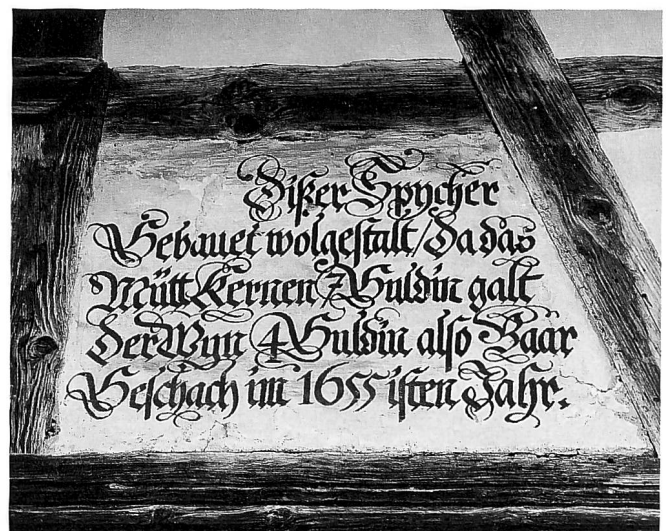 Dißer Spycher
Gebauet wolgestalt / da das
Mütt Kernen 7 Guldin galt
Der Wyn 4 Guldin also Baar
Geschach im 1655 isten Jahr.